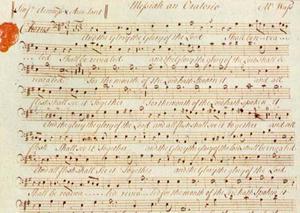 Messiah an Oratorio Mr Wass
Chorus
And the glory the glory of the Lord Shall be revea
led Shall be revealed and the glory the glory of the Lord Shall be
revealed for the mouth of the Lord hath spoken it and all
flesh shall see it together for the mouth of the Lord hath spoken it
And the glory the glory of the Lord and all flesh shall see it together and all
flesh Shall see it together and the glory the glory of the Lord shall be revealed
And all flesh shall see it together and the glory the glory of the Lord
shall be revealed for the mouth of the Lord hath Spoken it